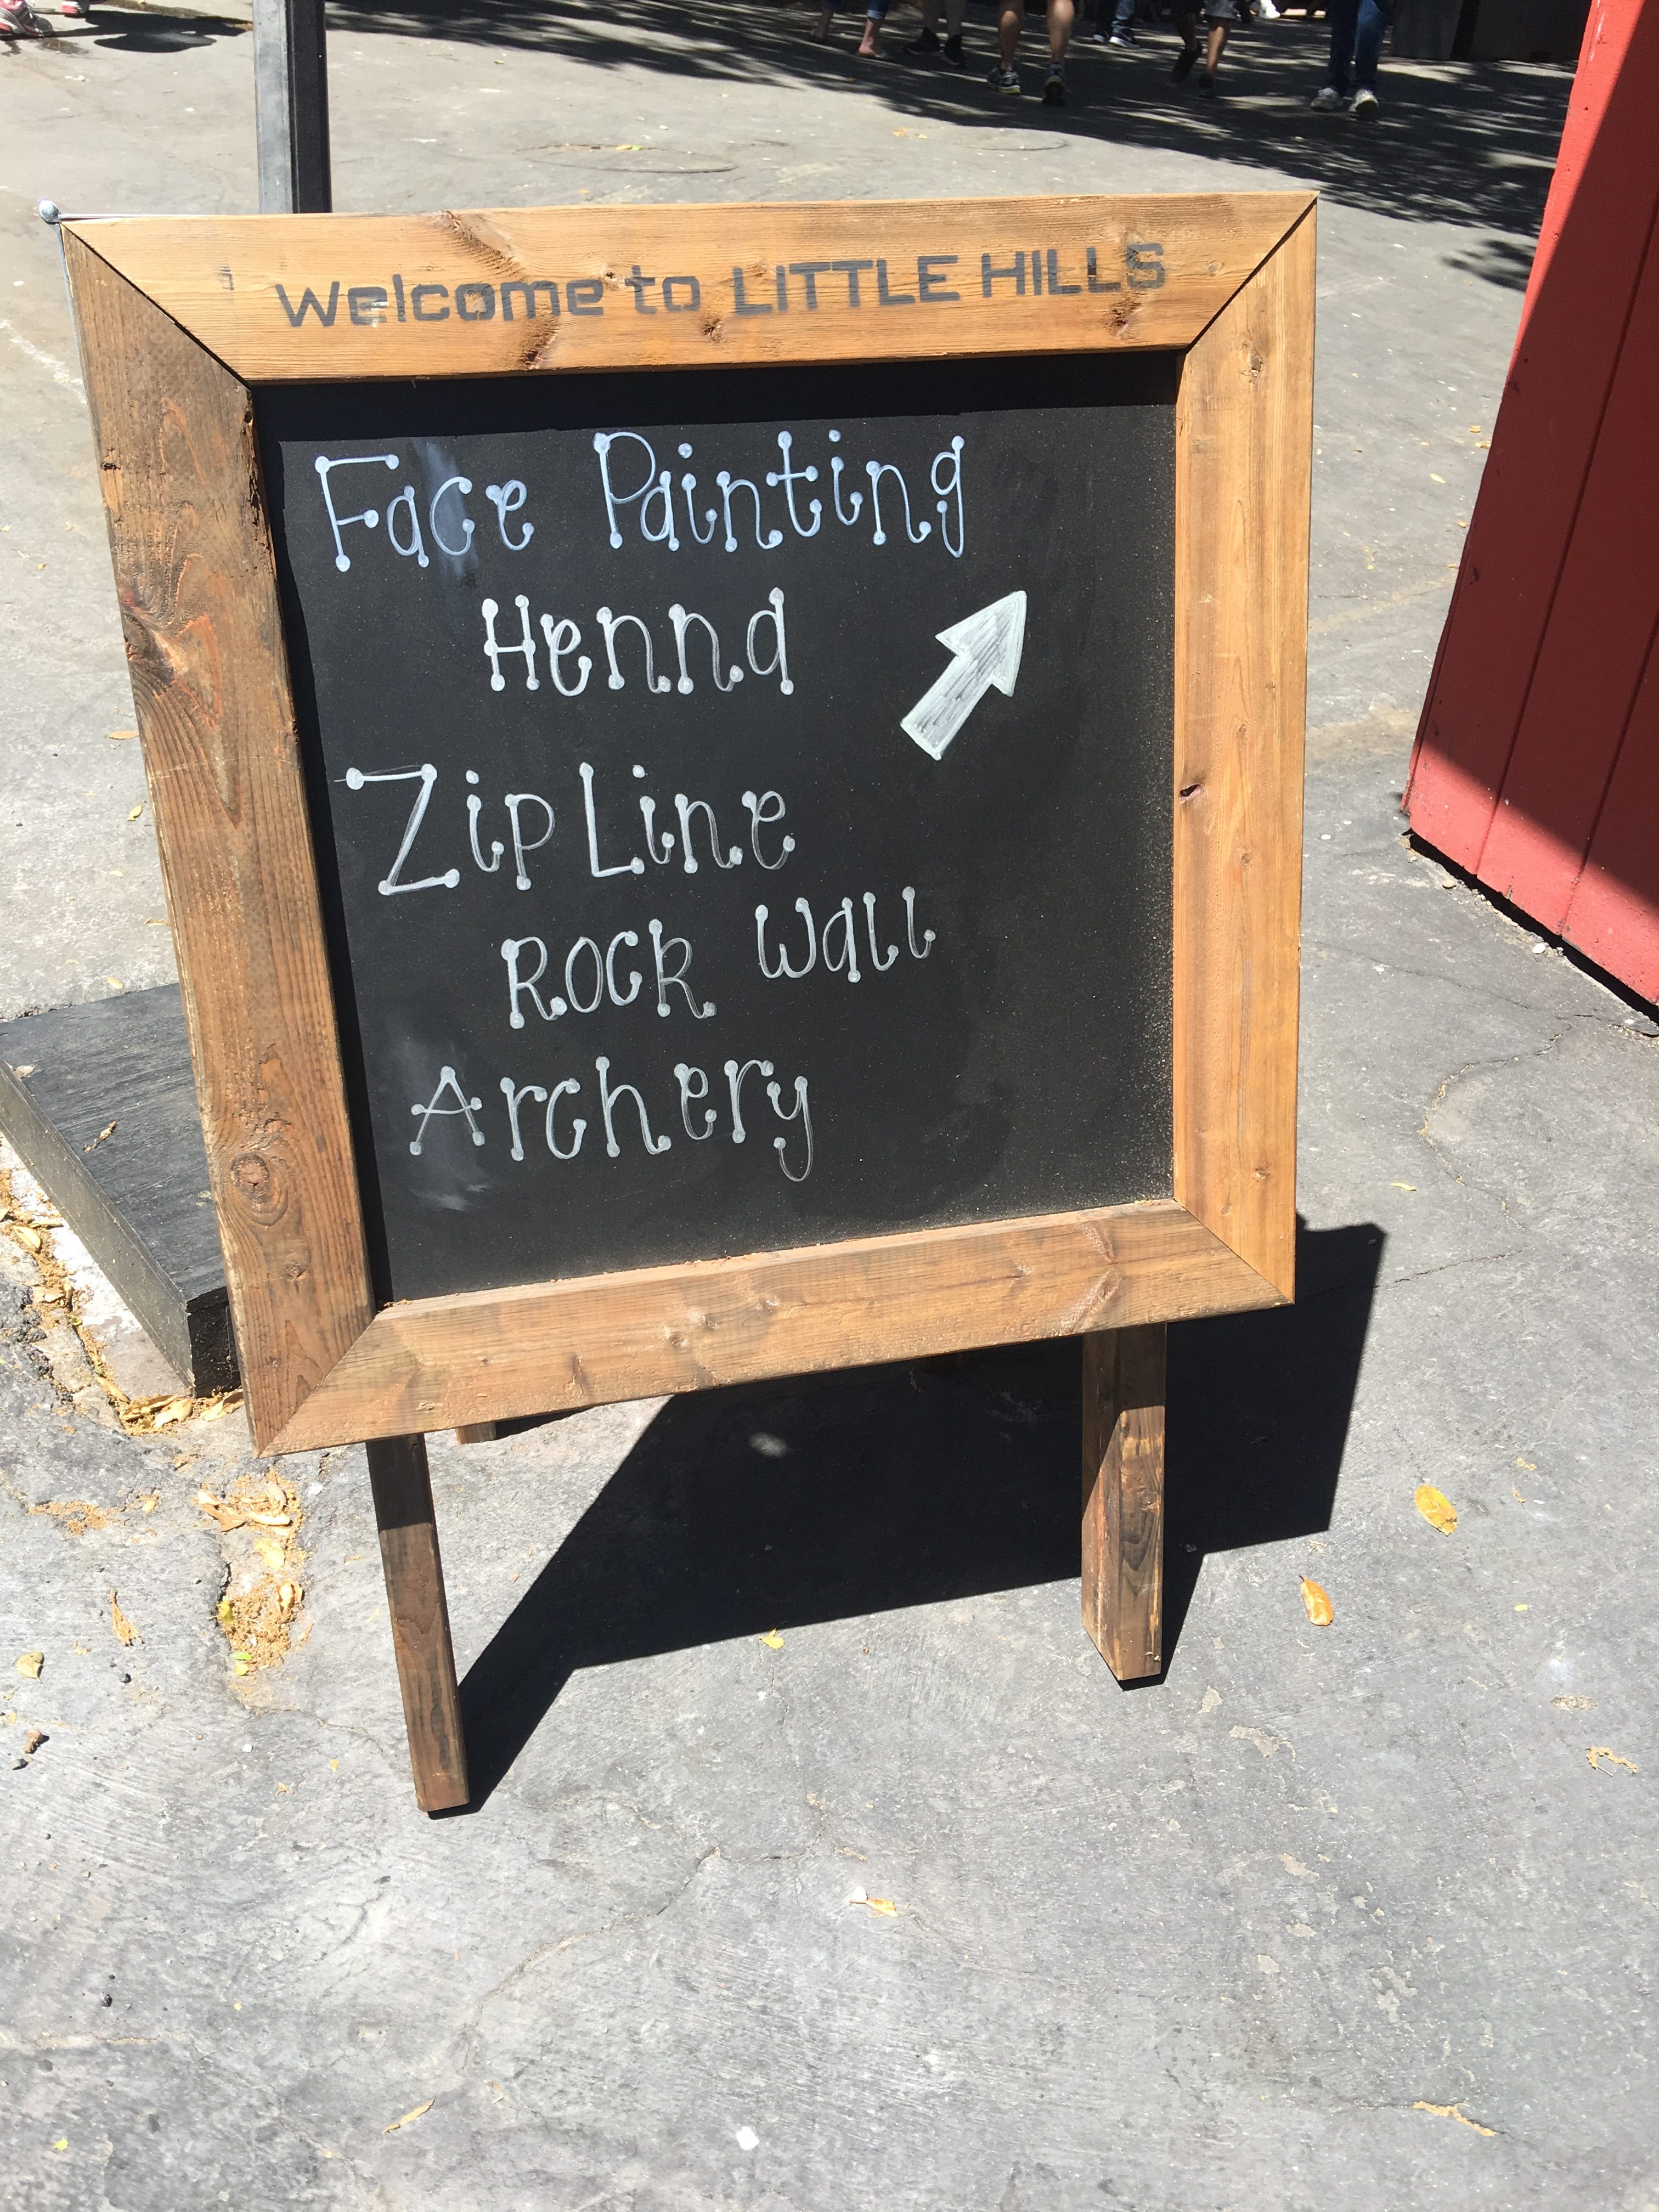 Welcome to LITTLE HILLS
Face Painting
Henna
Zip Line
Rock Wall
Archery